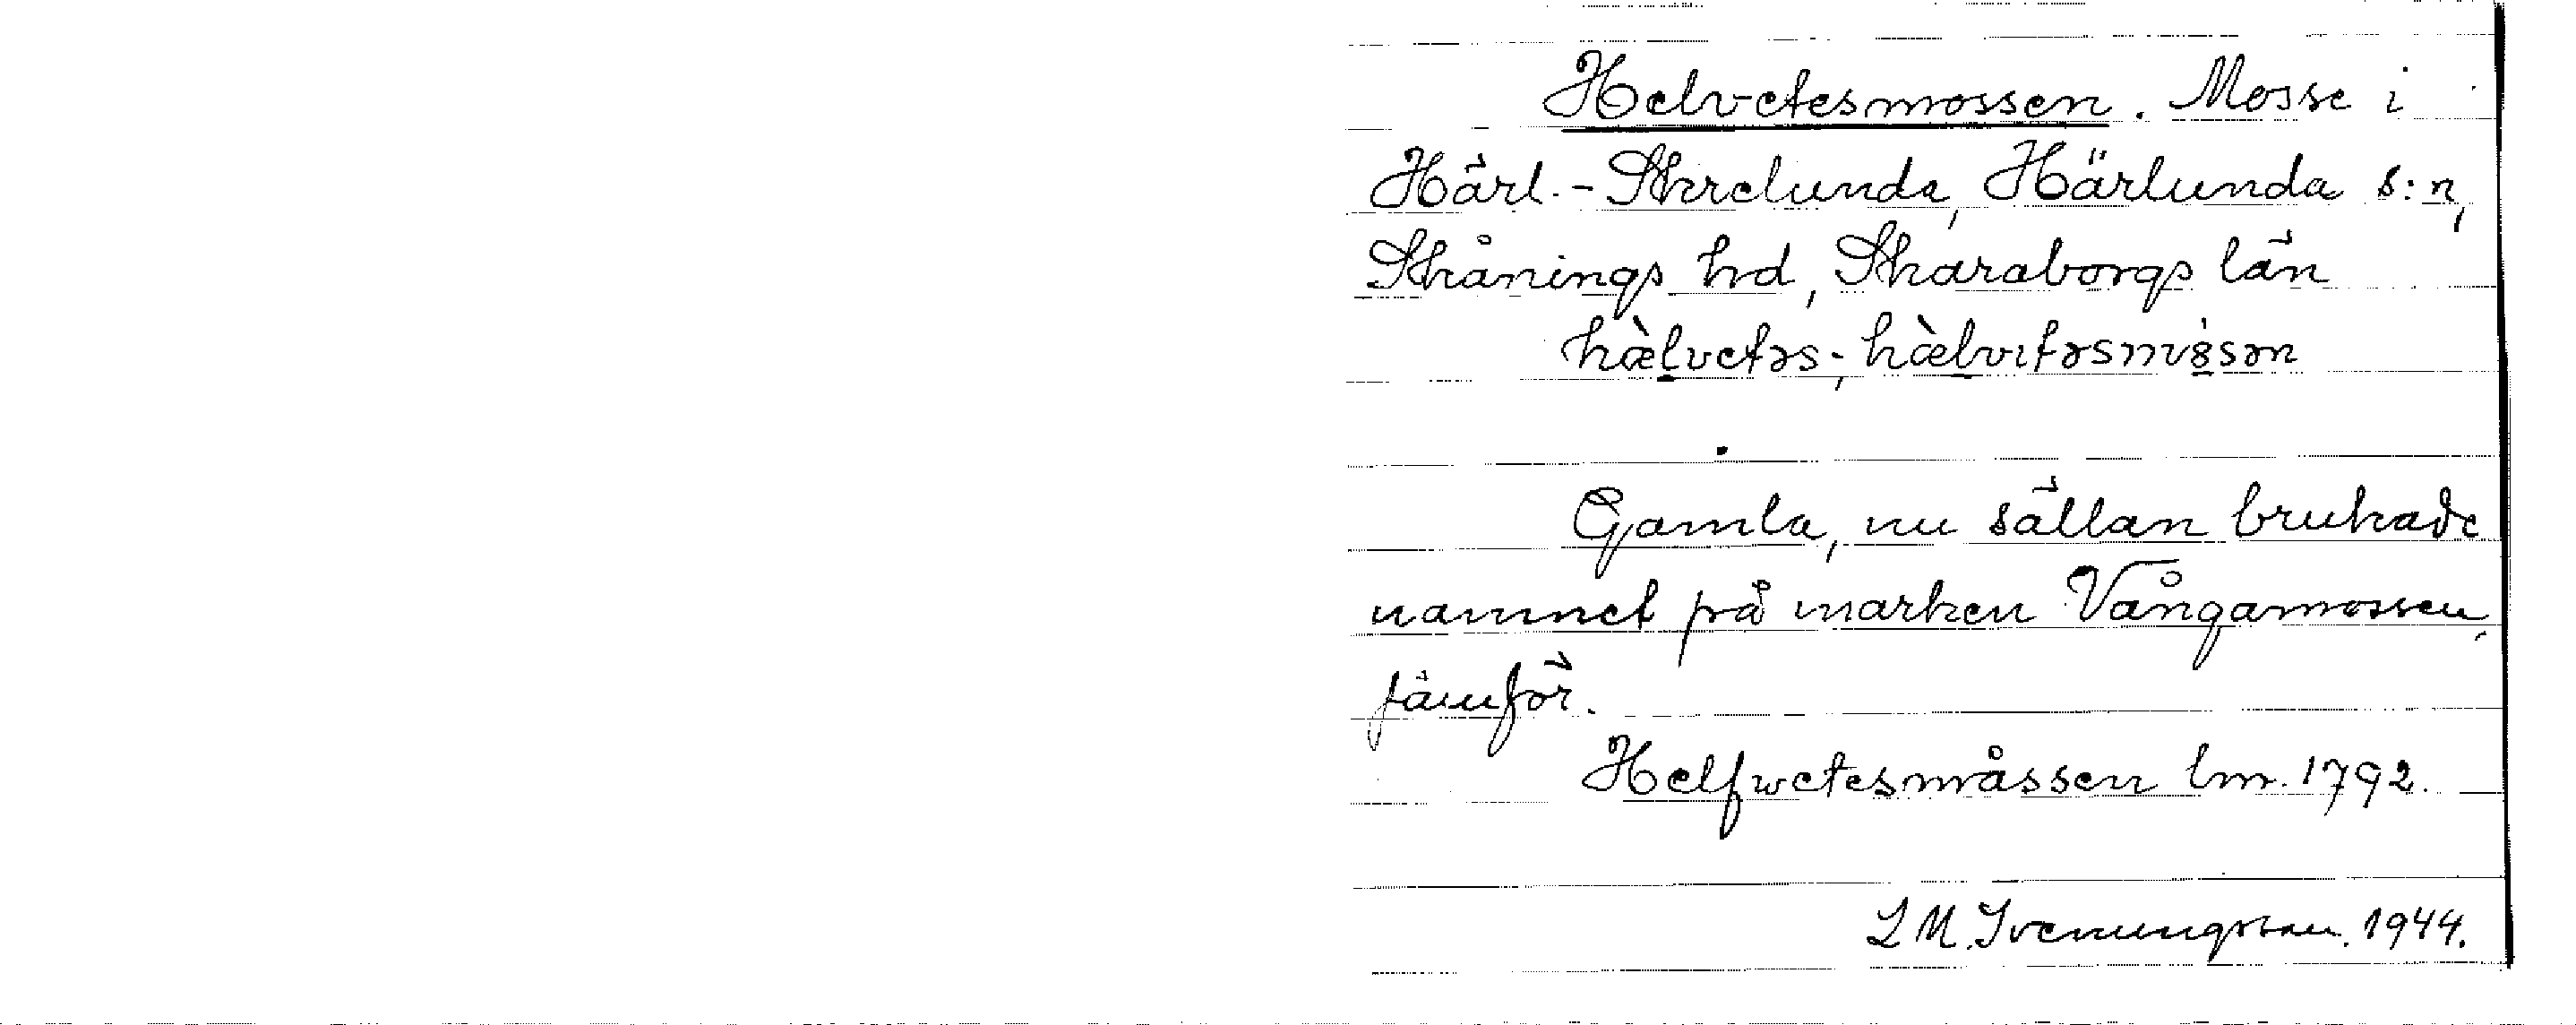 Helvetesmossen. Mosse i
Härl.-Skrelunda, Härlunda s:n,
Skånings hd, Skaraborgs län
hæ̀lvetəs-, hæ̀lvitəsmósən
Gamla, nu sällan brukade
namnet på marken Vångamossen,
jämför.
Helfwetesmåssen lm. 1792.
L M. Svenungsson. 1944.